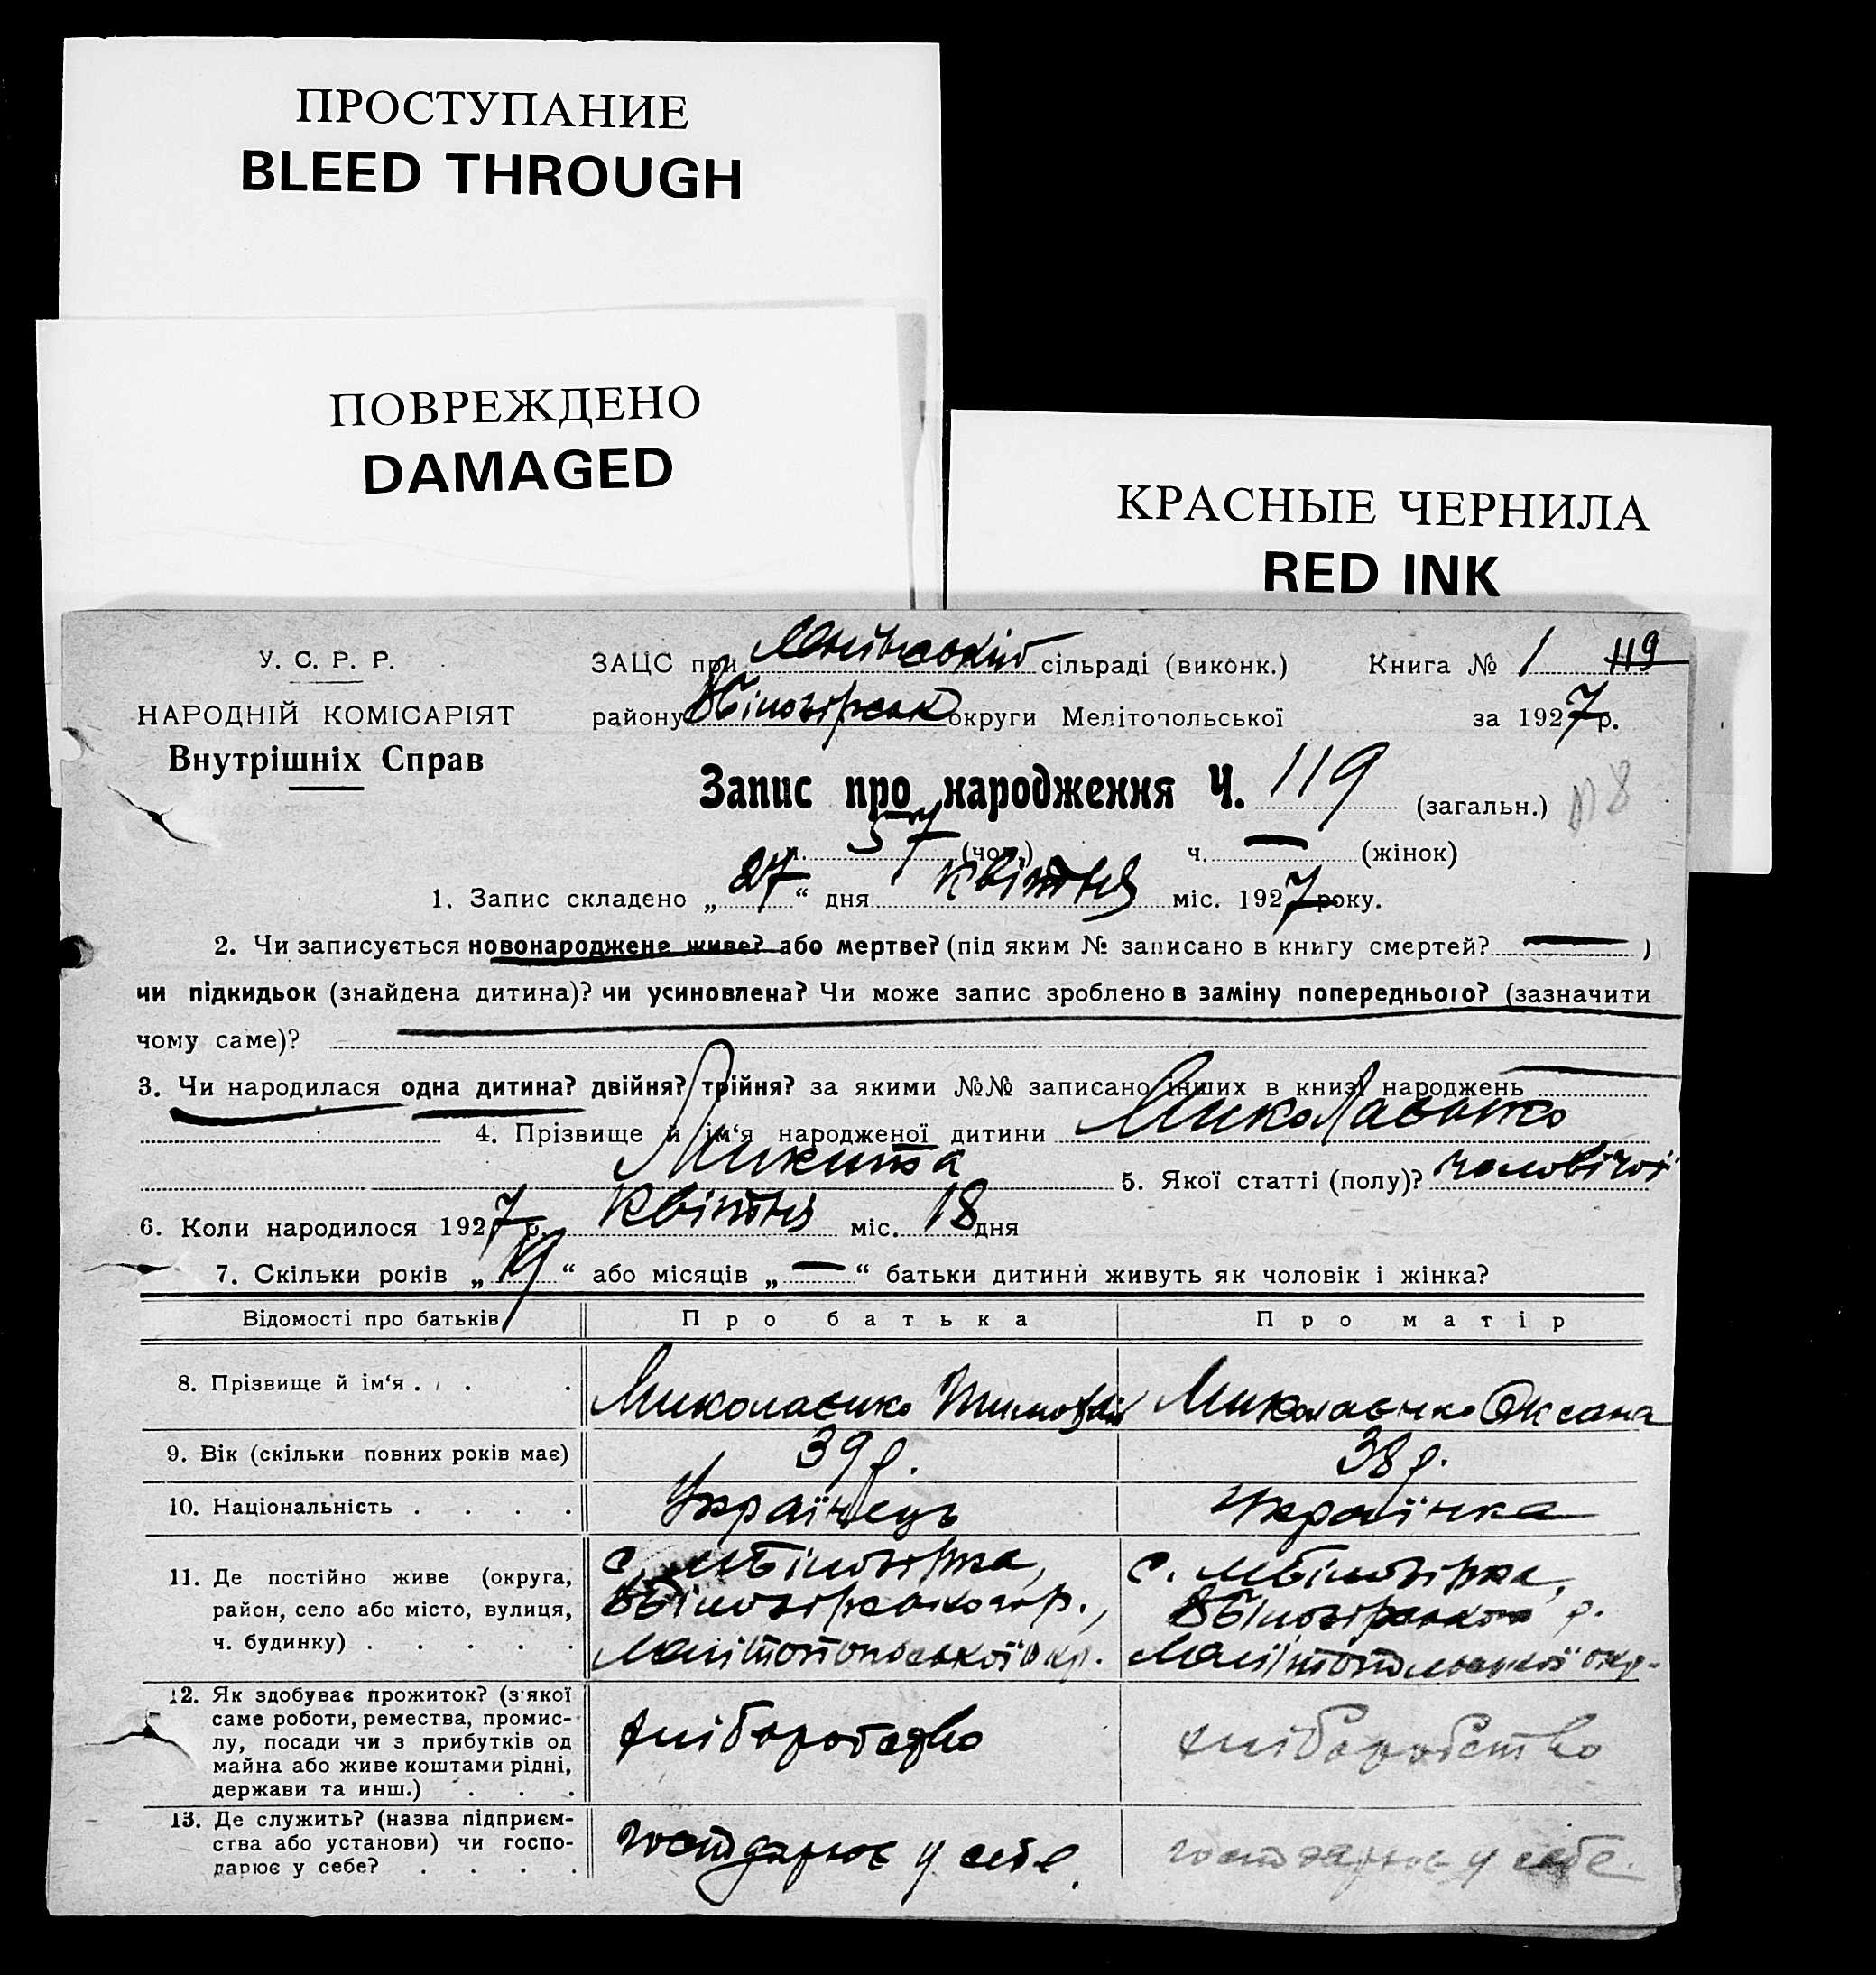 ПРОСТУПАНИЕ
BLEED THROUGH
ПОВРЕЖДЕНО
DAMAGED
КРАСНЫЕ ЧЕРНИЛА
RED INK
У. С. Р. Р.
НАРОДНІЙ КОМІСАРІЯТ
Внутрішніх Справ
ЗАЦС при сільраді (виконк.) Книга № 1 119
району округи Мелітопольської за 1927 р.
Запис про народження Ч. 119 (загальн.)
ч. 57 (чол.) ч. — (жінок)
1. Запис складено „27“ дня квітня міс. 1927 року.
2. Чи записується новонароджене живе? або мертве? (під яким № записано в книгу смертей? — )
чи підкидьок (знайдена дитина)? чи усиновлена? Чи може запис зроблено в заміну попереднього? (зазначити
чому саме)?
3. Чи народилася одна дитина? двійня? трійня? за якими №№ записано інших в книзі народжень —
4. Прізвище й ім‘я народженої дитини Миколаєнко
Микита 5. Якої статті (полу)? чоловічої
6. Коли народилося 1927 р. квітня міс. 18 дня
7. Скільки років „19“ або місяців „—“ батьки дитини живуть як чоловік і жінка?
Відомості про батьків Про батька Про матір
8. Прізвище й ім‘я . . . Миколаєнко Тимофій Миколаєнко Оксана
9. Вік (скільки повних років має) 39 р. 38 р.
10. Національність . . . . Українець Українка
11. Де постійно живе (округа,
район, село або місто, вулиця,
ч. будинку) . . . . .
с. МБілозірка,
ВБілозірського р.,
Мелітопольської окр.
с. МБілозірка,
ВБілозірського р.
Мелітопольської окр.
12. Як здобуває прожиток? (з якої
саме роботи, ремества, промис-
лу, посади чи з прибутків од
майна або живе коштами рідні,
держави та инш.) . . .
хліборобство
хліборобство
13. Де служить? (назва підприєм-
ства або установи) чи госпо-
дарює у себе? . . . .
господарює у себе.
господарює у себе.